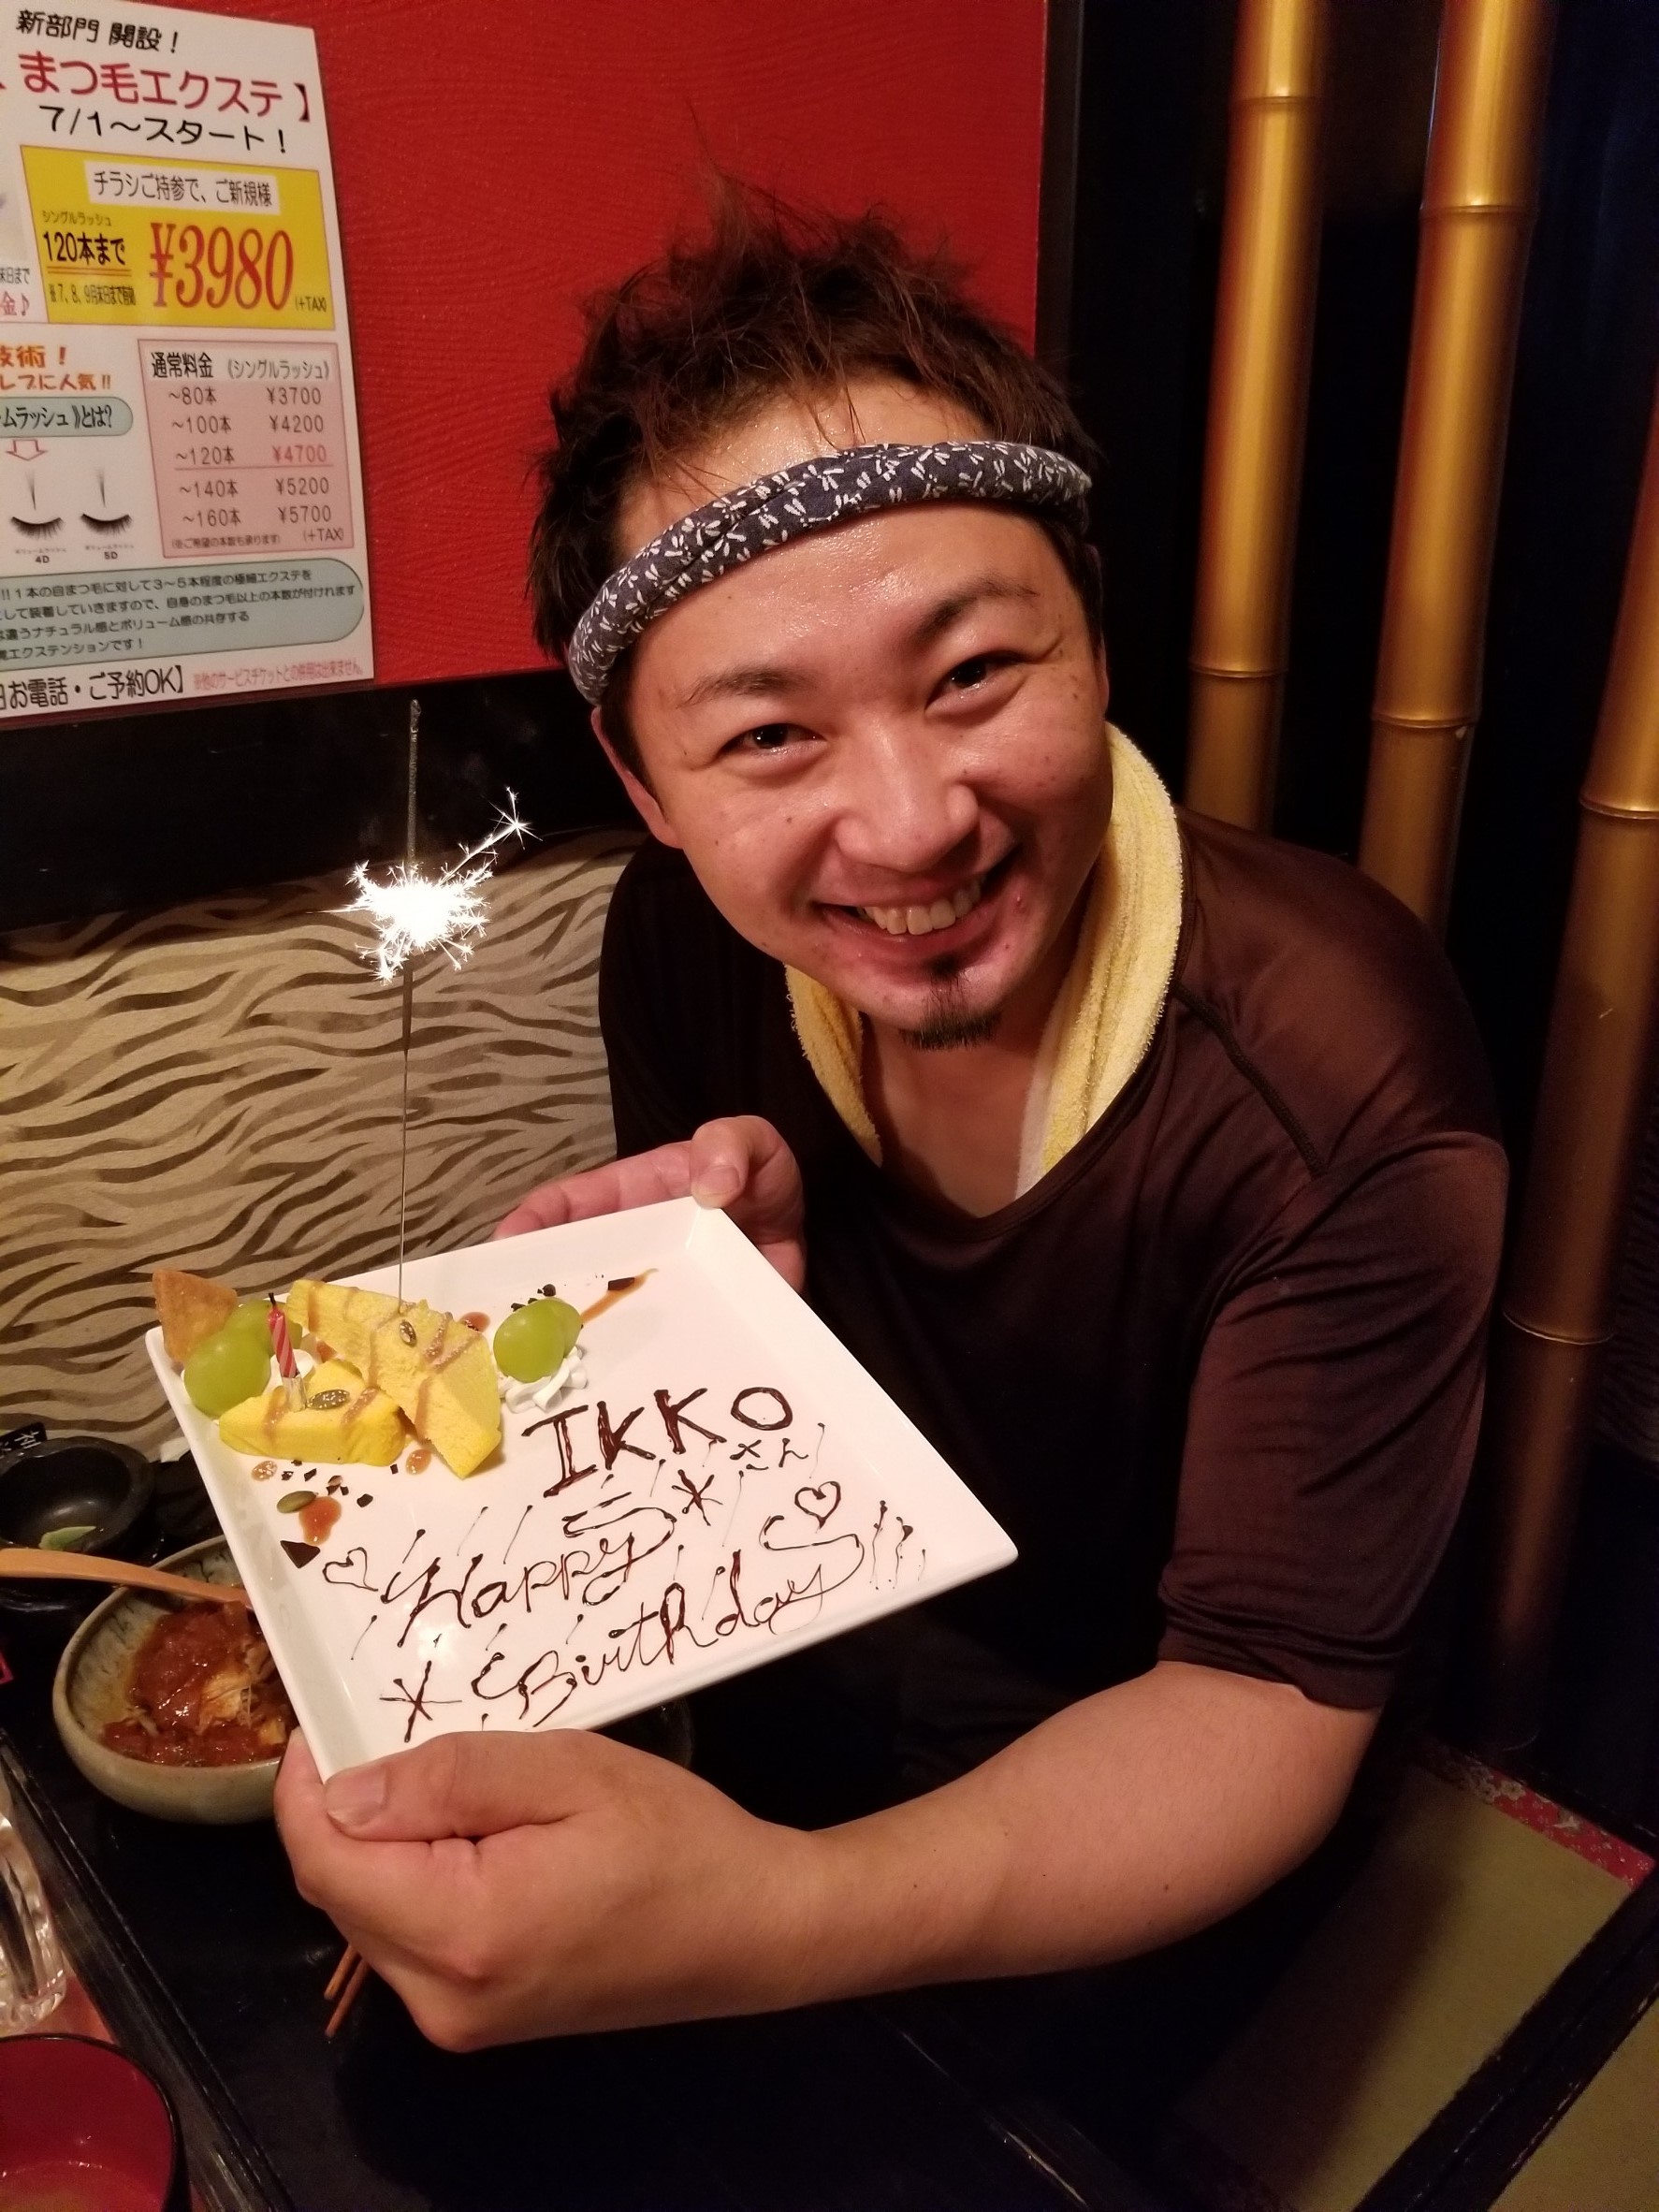 新部門 開設！
まつ毛エクステ】
7/1～スタート！
チラシご持参で、ご新規様
シングルラッシュ
120本まで
¥3980
(+TAX)
末日まで
金♪
技術！
レブに人気!!
ムラッシュ》とは?
4D
5D
通常料金 《シングルラッシュ》
～80本 ¥3700
～100本 ¥4200
～120本 ¥4700
～140本 ¥5200
～160本 ¥5700
(※ご希望の本数も承ります) (+TAX)
!!1本の自まつ毛に対して3～5本程度の極細エクステを
して装着していきますので、自身のまつ毛以上の本数が付けれます
違うナチュラル感とボリューム感の共存する
エクステンションです！
お電話・ご予約OK】 ※他のサービスチケットとの併用は出来ません。
IKKO
さん
Happy
Birthday